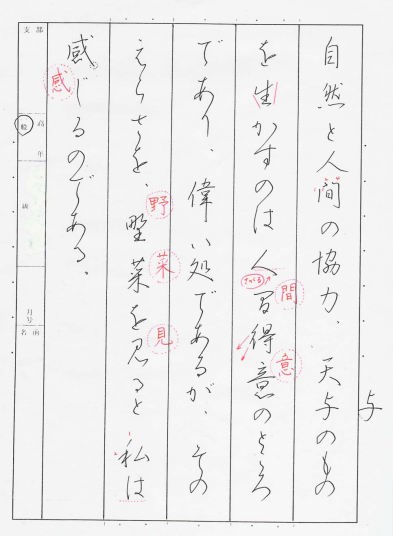 自然と人間の協力、天与のもの
与
を生かすのは人間得意のところ
間
意
であり、偉い処であるが、その
えらさを、野菜を見ると私は
野
菜
見
感じるのである。
感
支部
高
般
年
級
月
号
名前